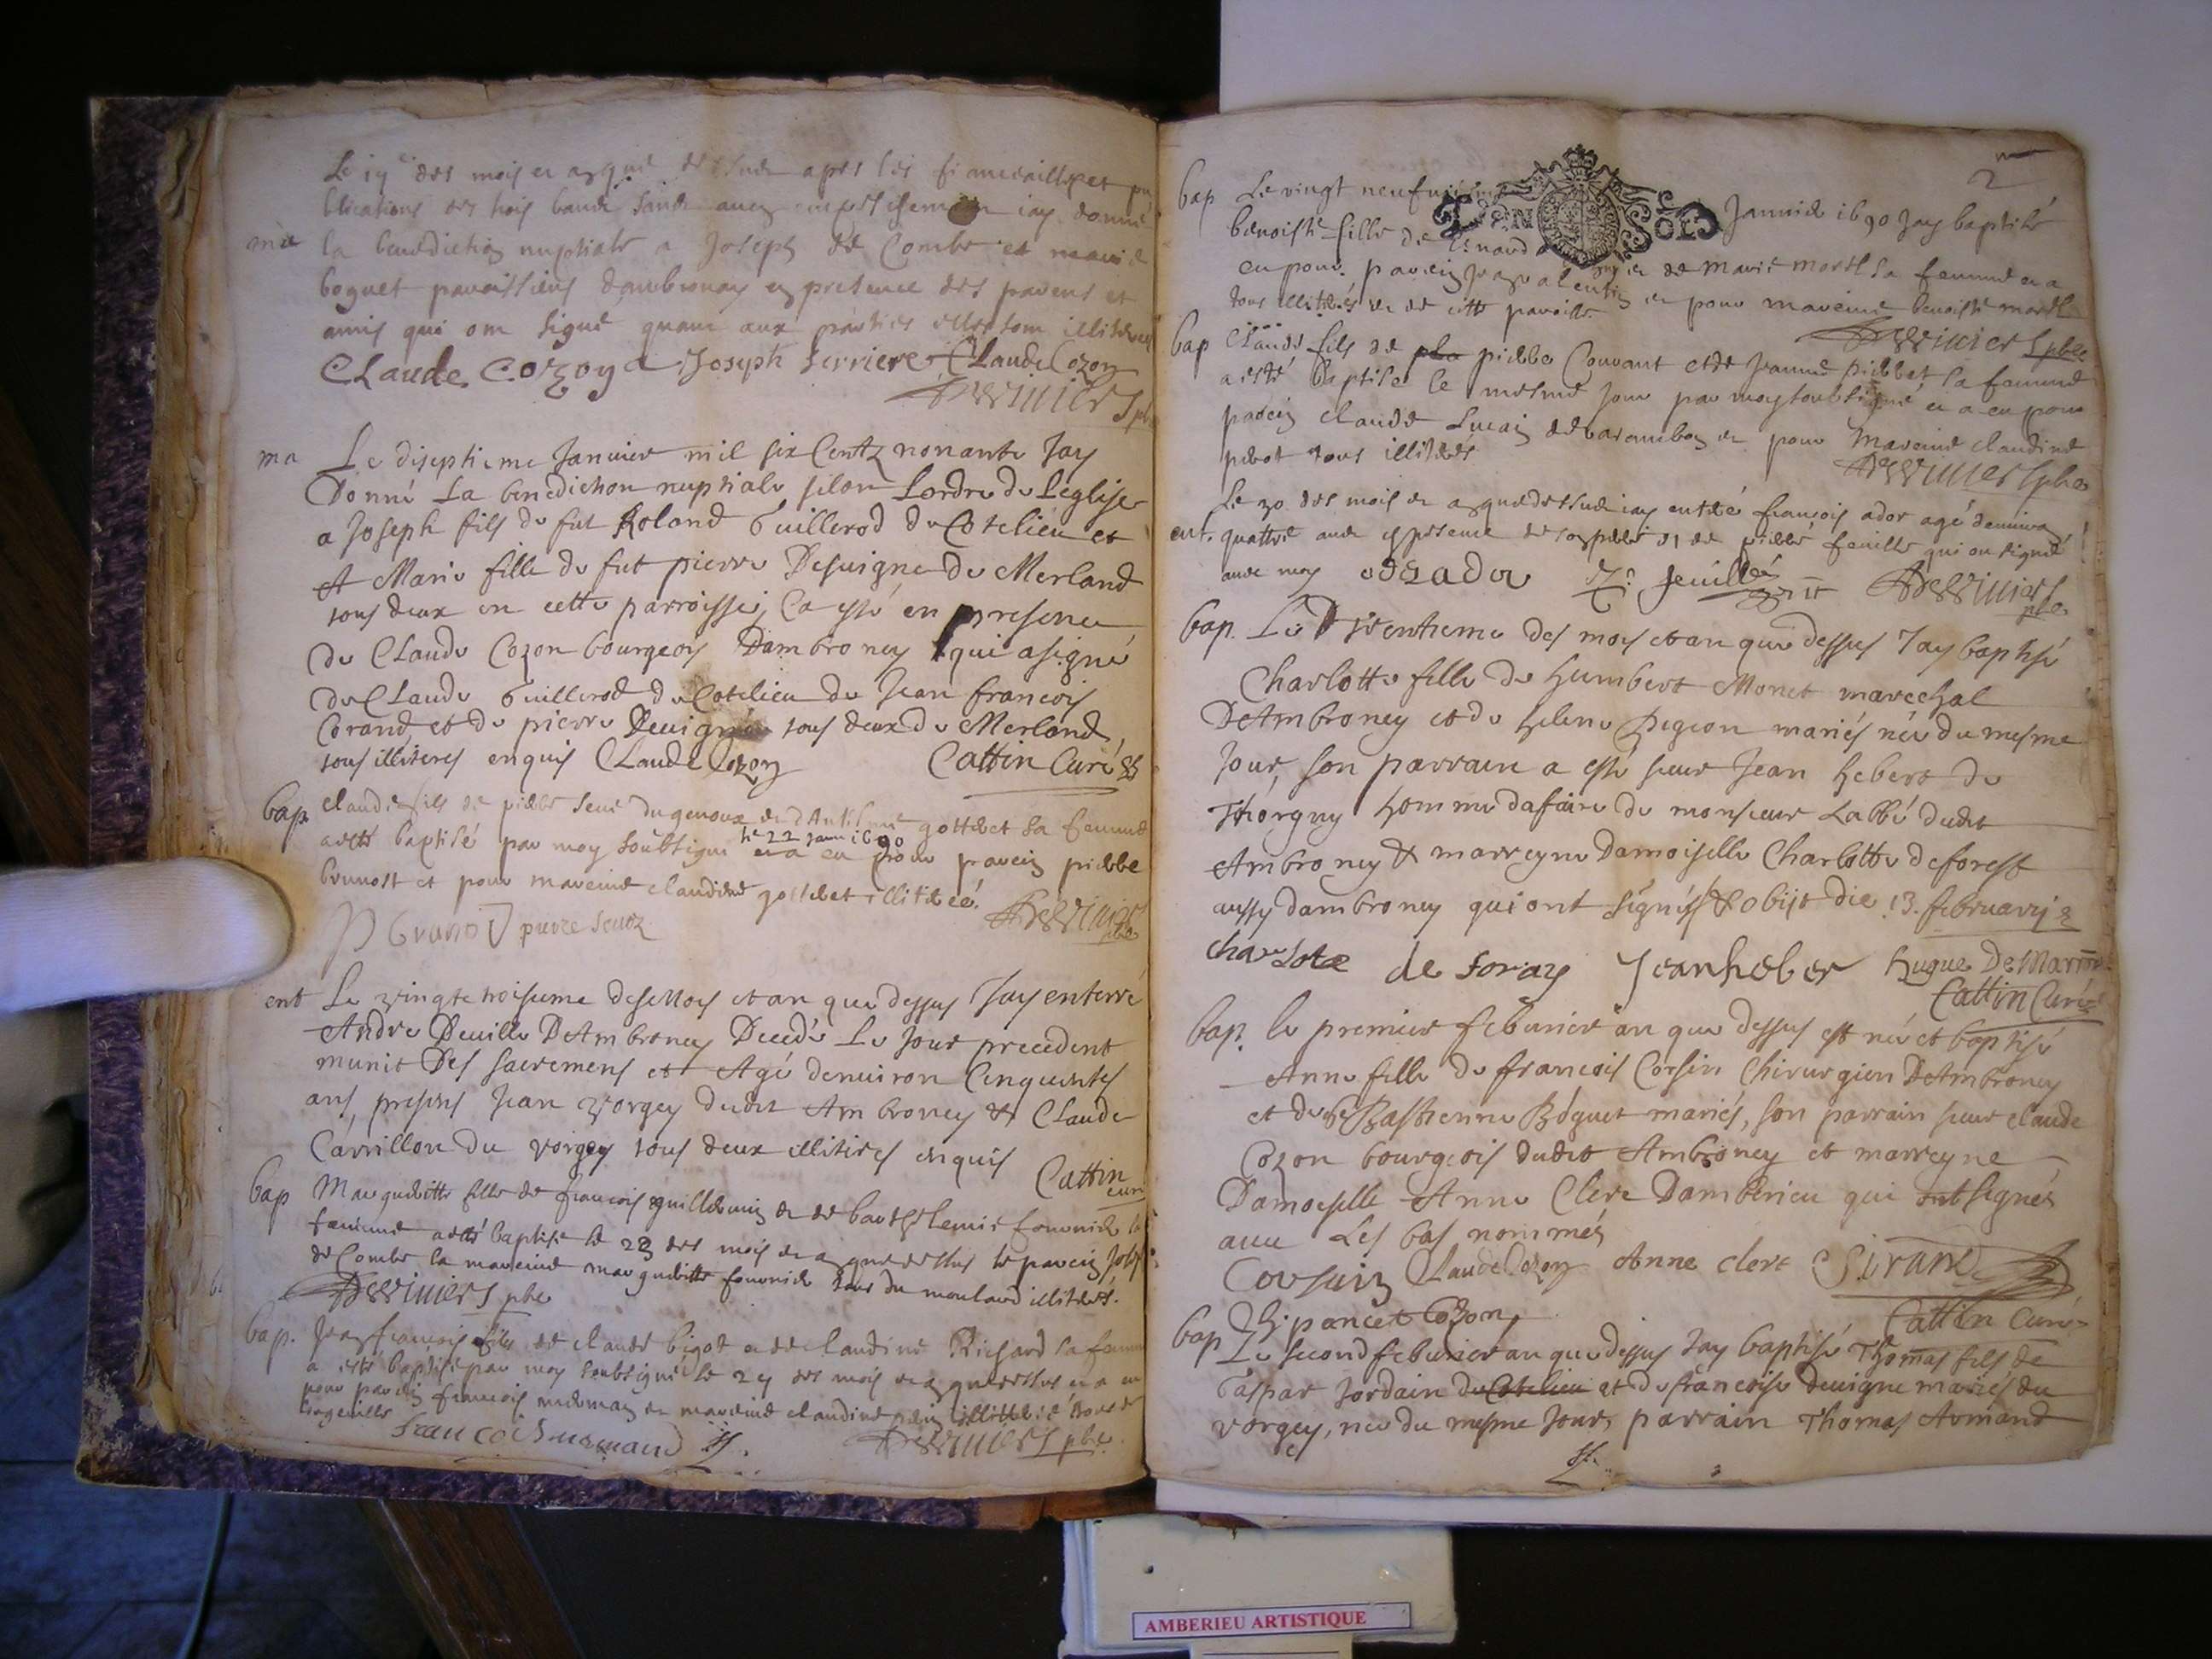 Le 17e des mois et an que dessus apres les fiancailles et pu
blications des trois bancs sans aucun empeschement iay donné
ma la benediction nuptiale a Joseph de Combe et marie
boguet paroissiens dambronay en presence des parens et
amis qui ont signé quant aux parties elles sont illiterees
CLaude Cozon Joseph ferriere CLaude Cozon
ma Le diseptieme Janvier mil six Centz nonante Jay
Donné La benediction nuptiale selon Lordre de Leglise
a Joseph fils de fut Roland Guillerod du Cotelieu et
et Marie fille de fut pierre Desvigne de Merland
tous deux en cette parroisse, Ca esté en presence
de CLaude Cozon bourgeois Dambroney qui a signé
de CLaude Guillerod du Cotelieu de Jean francois
Corand, et de pierre Devigne tous deux de Merland,
tous illiteres enquis CLaude Cozon Cattin Curé
bap claude fils de pierre seve dugenoux et dAnthelme gottret sa femme
a esté baptisé par moy soubsigné le 22 janv 1690 et a eu pour parein pierre
brunost et pour mareine claudine gottret illiterée.
P Grano pierre sevoz
ent Le vingte troisieme desdits Mois et an que dessus Jay enterré
Andre Deville DAmbroney Decedé Le Jour precedent
munit Des sacremens et Agé denviron Cinquantes
ans, presens Jean vorgey dudit Ambroney & Claude
Carrillon du vorgey tous deux illiteres enquis Cattin
curé
bap Marguerite fille de francois guillermin et de barthelemie fournier sa
femme a esté baptisée le 23 des mois et an que dessus le parein Joseph
de Combe la mareine marguerite fournier tous du merland illiterés.
bap. Jean francois fils de claude bigot et de claudine Richard sa femme
a esté baptisé par moy soubsigné le 24 des mois et an que dessus et a eu
pour parein francois et mareine claudine illiterée
francois
2
bap Le vingt neufvieme Janvier 1690 Jay baptisé
benoiste fille de et de marie morel sa femme et a
eu pour parein Jean valentin et pour mareine benoiste morel
tous illiterés et de cette paroisse.
bap Claude fils de pierre Couvant et de Jeanne pierret sa femme
a esté baptisé le mesme jour par moy soubsigné et a eu pour
parein claude Lucain de varambon et pour mareine claudine
perot tous illiterés
Le 30 des mois et an que dessus iay enterré francois ador agé denviron
ent. quattre ans en presence de son pere et de pierre feuille qui ont signé
avec moy
bap. Le trentieme des mois et an que dessus Jay baptisé
Charlotte fille de humbert Monet marechal
DAmbroney et de helene Pigeon mariés née du mesme
Jour, son parrain a esté sieur Jean hebert de
Thorgny homme dafaire de monsieur Labbé dudit
Ambroney & marreyne Damoiselle Charlotte deforest
aussy dambroney qui ont signés & obijt die 13. februarij
charlote de foray Jean heber hugue De Marme
Cattin Curé
bap. le premier feburier an que dessus est née et baptisé
Anne fille de francois Corsin Chirurgien DAmbroney
et de Bastienne Boguet mariés, son parrain sieur claude
Cozon bourgeois dudit Ambroney et marreyne
Damoiselle Anne Clerc Damberieu qui ont signés
avec Les bas nommés
Corsain Claude Cozon Anne clerc Sirand
pancet Cozon Cattin Curé
bap Le second feburier an que dessus Jay baptisé Thomas fils de
Gaspar Jordain du Cotelieu et de francoise devigne mariés du
vorgey, née du mesme Jour, parrain Thomas Armand
AMBERIEU ARTISTIQUE